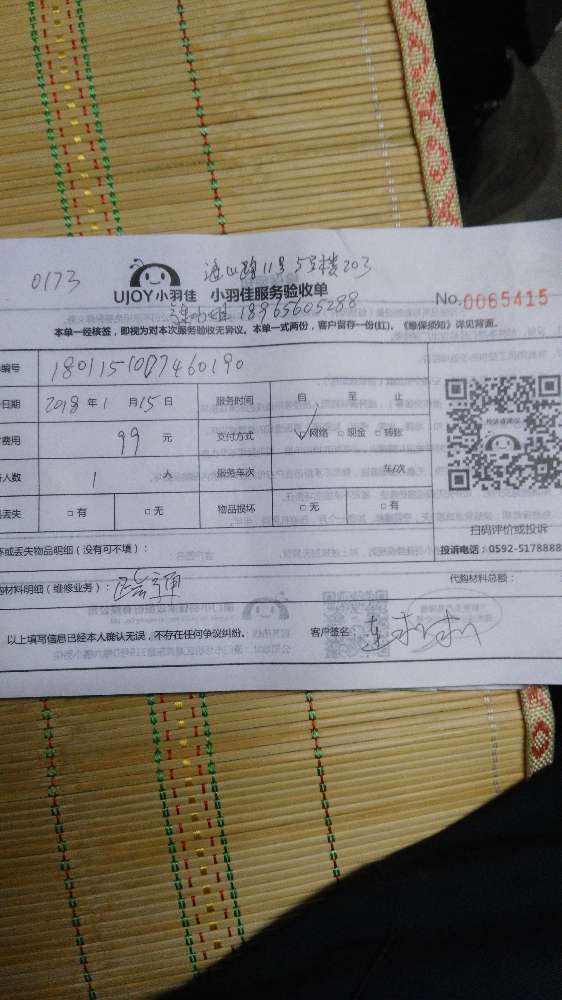 0173 海山路11号5号楼203
UJOY小羽佳 小羽佳服务验收单 No.0065415
连小姐 18965605288
本单一经核签，即视为对本次服务验收无异议。本单一式两份，客户留存一份(红)。《维保须知》详见背面。
编号
日期 2018年1月15日 服务时间 自 至 止
费用 99 元 支付方式 ☑网络 □现金 □转账
人数 1 人 服务车次 车/次
丢失 □有 □无 物品损坏 □无 □有
扫码评价或投诉
投诉电话：0592-5178888
坏或丢失物品明细（没有可不填）：
购材料明细（维修业务）： 代购材料总额：
以上填写信息已经本人确认无误，不存在任何争议纠纷。 客户签名：